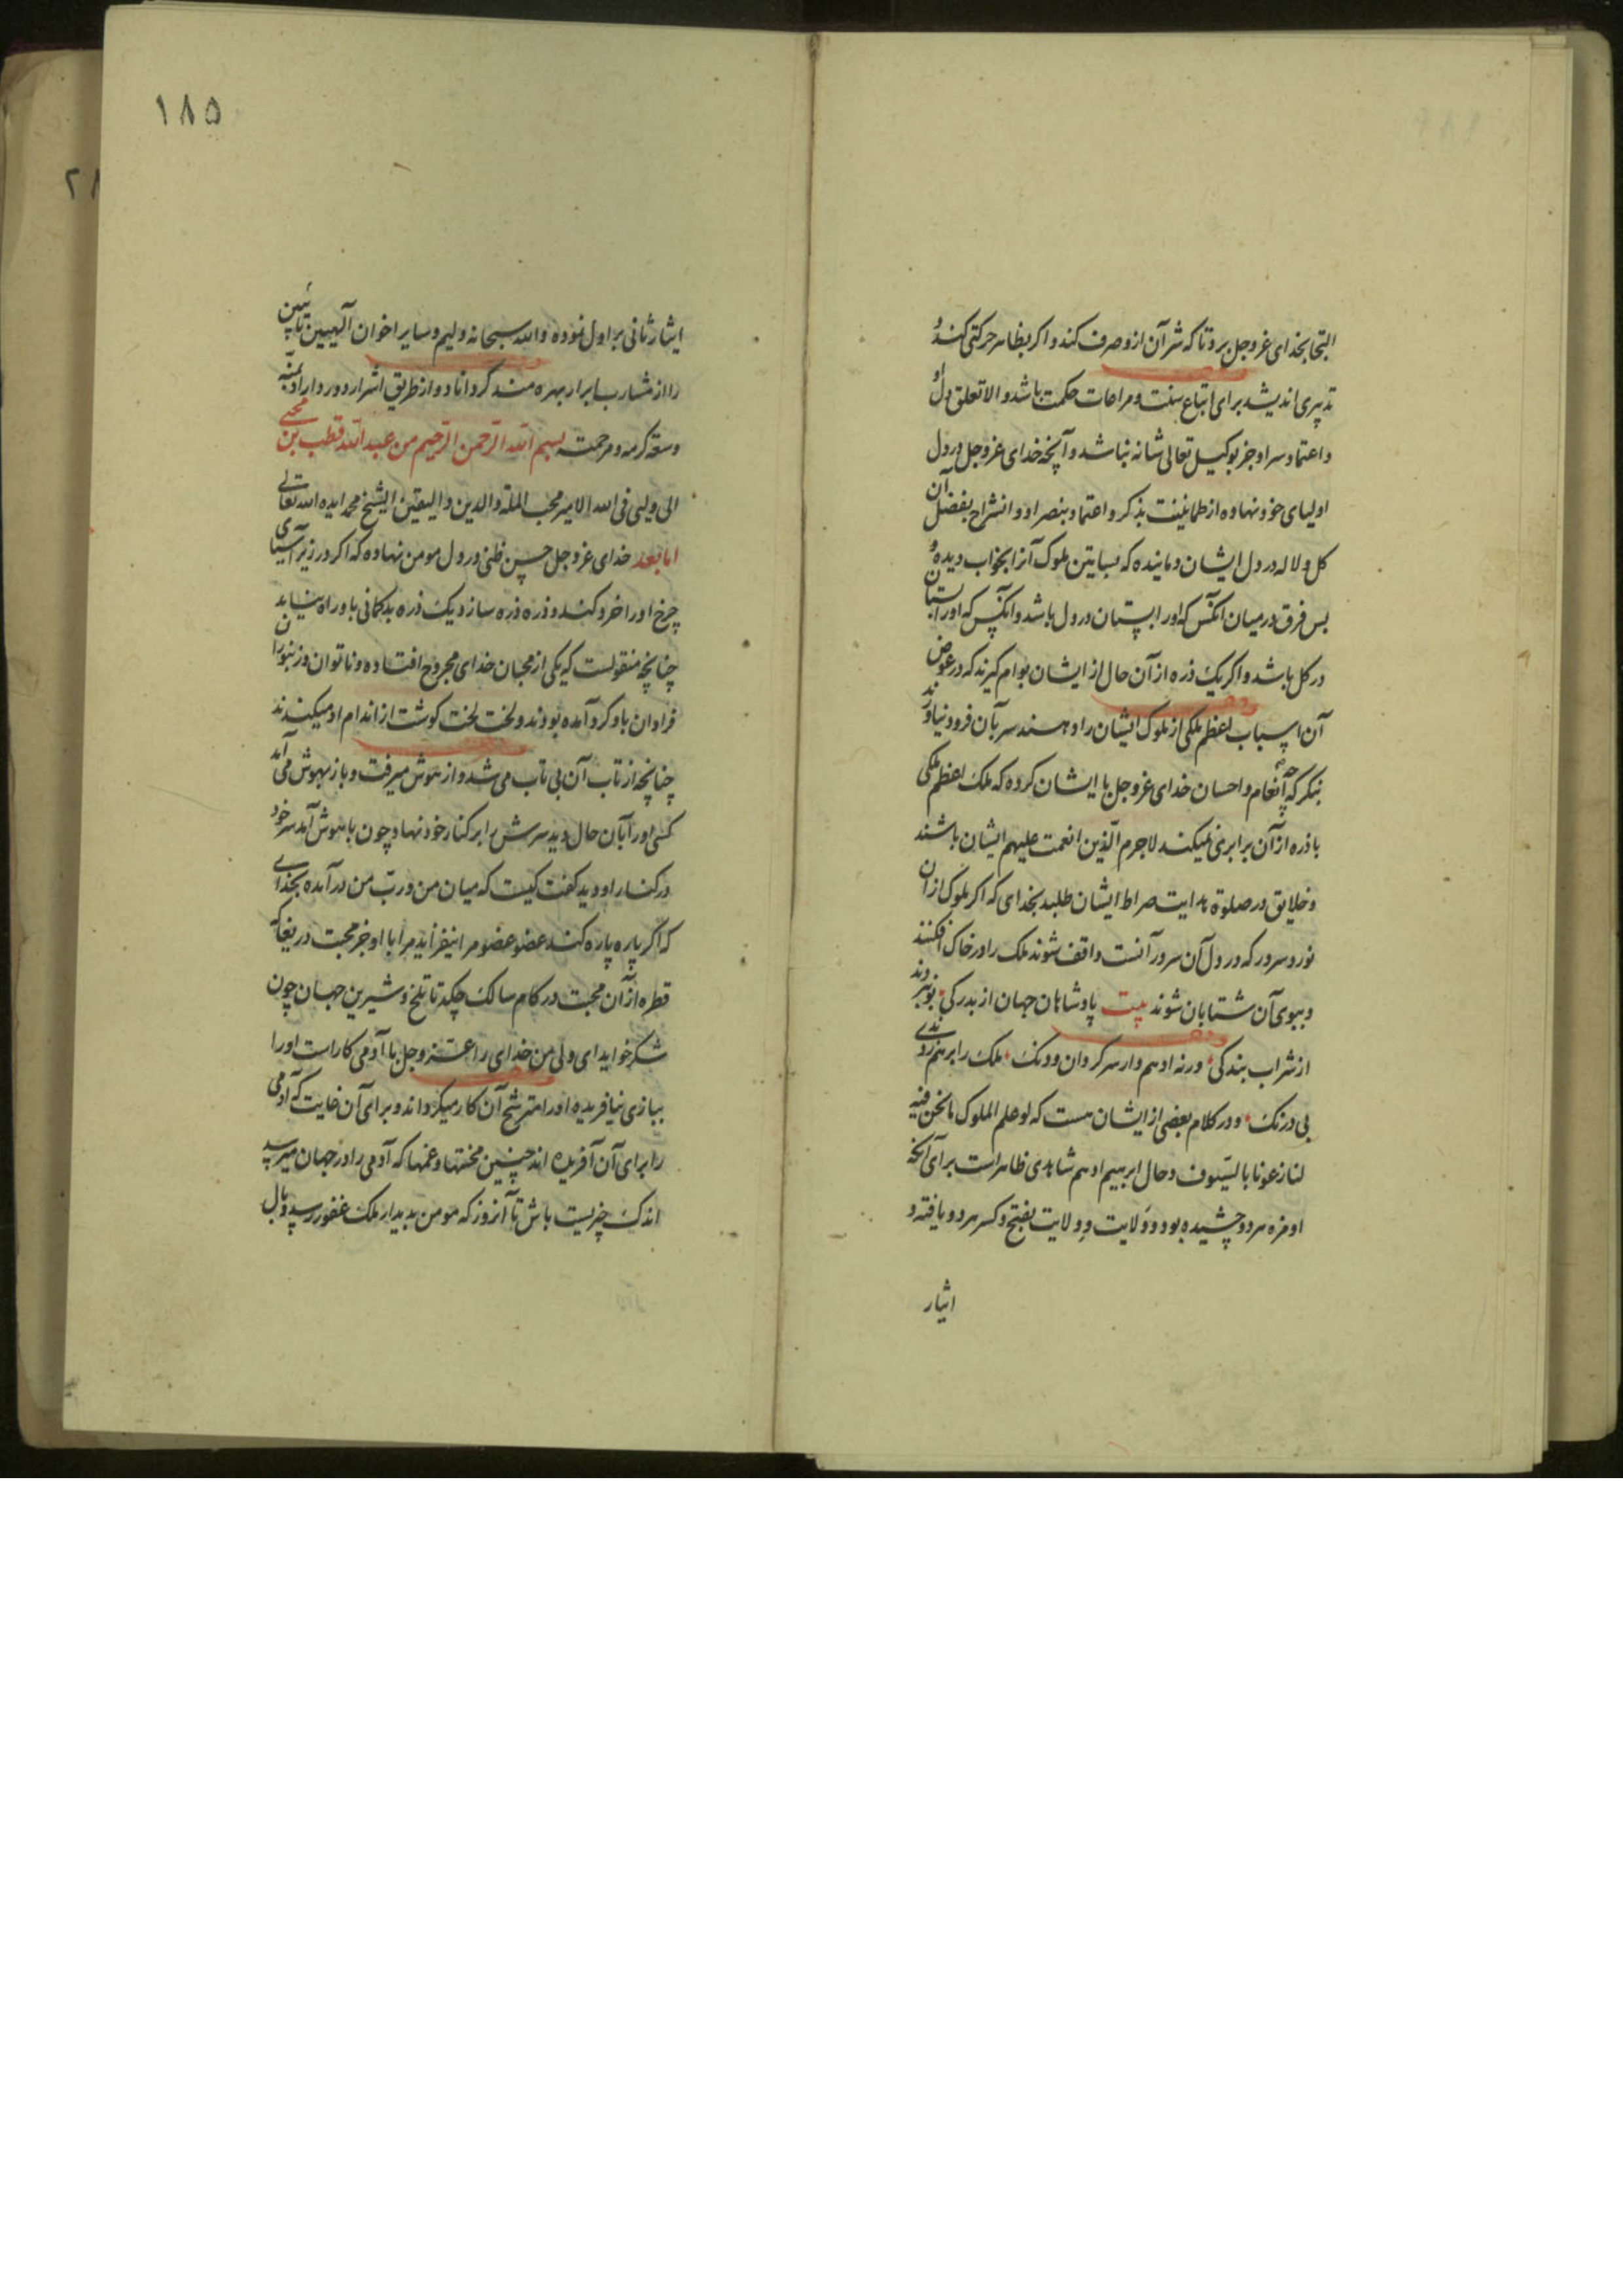 التجا بخدای عزوجل برد تا که شر آن ازو صرف کند و اکر بظاهر حرکتی کند و
تدبیری اندیشد برای اتباع سنت و مراعات حکمت باشد و الا تعلق دل او
و اعتماد سر او جز بوکیل تعالی شانه نباشد و آنچه خدای عزوجل در دل
اولیای خود نهاده از طمانینت بذکر و اعتماد بنصر او و انشراح بفضل آن
کل و لاله در دل ایشان دمانیده که بساتین ملوک آنرا بخواب دیده و
بس فرق در میان آنکس که اورا بستان در دل باشد و آنکس که اورا بستان
در کل باشد و اکر یک ذره از آن حال از ایشان بوام کیرند که در عوض
آن اسباب اعظم ملکی از ملوک ایشان را دهند سر بآن فرود نیاورند
بنکر که چه انعام و احسان خدای عزوجل با ایشان کرده که ملک اعظم ملکی
با ذره از آن برابری نمیکند لاجرم الذین انعمت علیهم ایشان باشند
و خلایق در صلوة هدایت صراط ایشان طلبند بخدای که اکر ملوک از آن
نور و سرور که در دل آن سرور آنست واقف شوند ملک را در خاک افکنند
و ببوی آن شتابان شوند بیت پادشاهان جهان از بدرکی بو نبردند
از شراب بندکی ورنه ادهم وار سرکردان و دنک ملک را برهم زدندی
بی درنک و در کلام بعضی از ایشان هست که لو علم الملوک ما نحن فیه
لنازعونا بالسیوف و حال ابرهیم ادهم شاهدی ظاهر است برای آنکه
او مزه هر دو چشیده بود و وَلایت و وِلایت بفتح و کسر هر دو یافته و
ایثار
۱۸۵
ایثار ثانی بر اول نموده والله سبحانه ولیهم و سایر اخوان آلهیین تائبین
را از مشارب ابرار بهره مند کرداناد و از طریق اشرار دور داراد بمنّه
وسعة کرمه و رحمته بسم الله الرحمن الرحیم من عبدالله قطب بن محیی
الی ولیی فی الله الامیر محب الملة و الدین و الیقین الشیخ محمد ایده الله تعالی
اما بعد خدای عزوجل حسن ظنی در دل مومن نهاده که اکر در زیر آسیای
چرخ اورا خرد کند و ذره ذره سازد یک ذره بدکمانی باو راه نیابد
چنانچه منقولست که یکی از محبان خدای مجروح افتاده و ناتوان و زنبوران
فراوان باو کرد آمده بودند و لخت لخت کوشت از اندام او میکندند
چنانچه از تاب آن بی تاب می شد و از هوش میرفت و باز بهوش می آمد
کسی اورا بآن حال دید سرش را بر کنار خود نهاد چون باهوش آمد سر خود
در کنار او دید کفت کیست که میان من و ربّ من درآمده بخدای
که اکر پاره پاره کند عضو عضو مرا نیفزاید مرا با او جز محبت دریغا که
قطره از آن محبت در کام سالک چکد تا تلخ و شیرین جهان چون
شکر خواید ای ولی من خدای را عزوجل با آدمی کاراست اورا
ببازی نیافریده اورا مترشح آن کار میکرداند و برای آن غایت که آدمی
را برای آن آفریده اند چنین محنتها و غمها که آدمی را در جهان میرسد
اندک چیزیست باش تا آنروز که مومن بدیدار ملک غفور رسد و بال